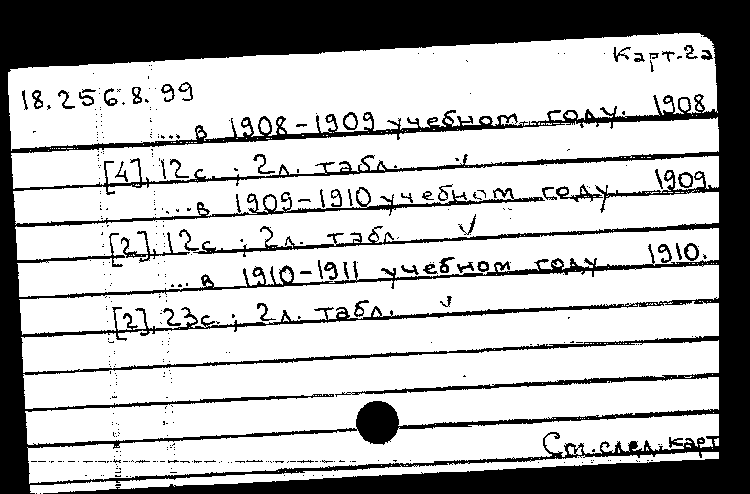 Карт. 2а
18.256.8.99
... в 1908-1909 учебном году. 1908.
[4], 12 с. ; 2 л. табл. ✓
... в 1909-1910 учебном году. 1909.
[2], 12 с. ; 2 л. табл. ✓
... в 1910-1911 учебном году. 1910.
[2], 23 с. ; 2 л. табл. ✓
См. след. карт